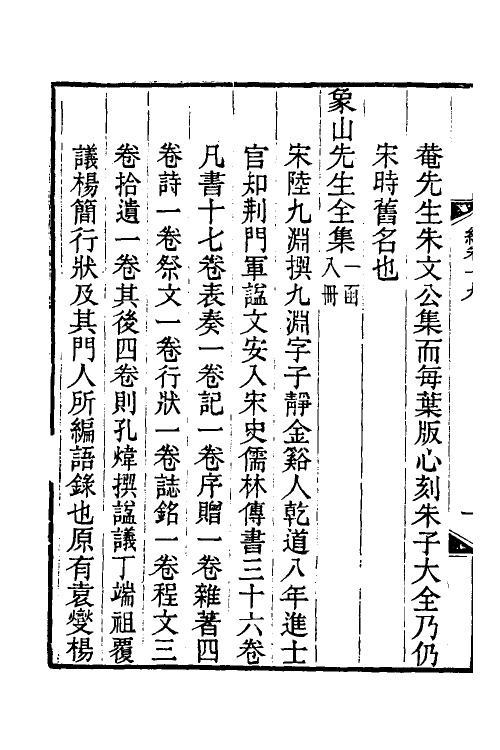 菴先生朱文公集而每葉版心刻朱子大全乃仍
宋時舊名也
象山先生全集一函八冊
宋陸九淵撰九淵字子靜金谿人乾道八年進士
官知荆門軍諡文安入宋史儒林傳書三十六卷
凡書十七卷表奏一卷記一卷序贈一卷雜著四
卷詩一卷祭文一卷行狀一卷誌銘一卷程文三
卷拾遺一卷其後四卷則孔煒撰諡議丁端祖覆
議楊簡行狀及其門人所編語錄也原有袁燮楊